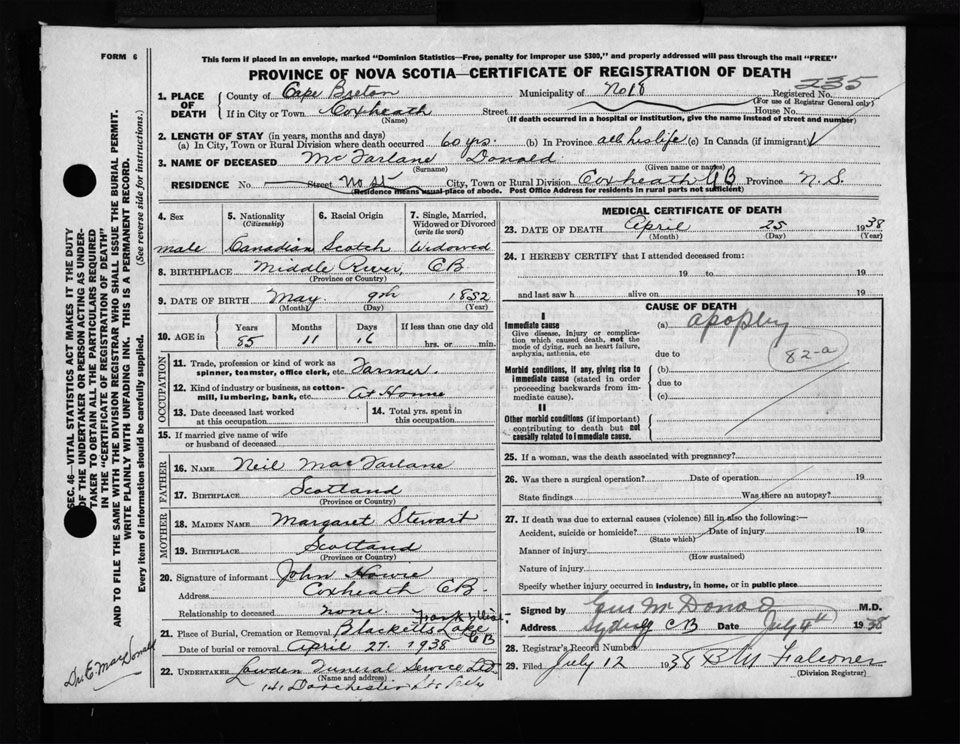 FORM 6
This form if placed in an envelope, marked "Dominion Statistics—Free, penalty for improper use $300," and properly addressed will pass through the mail "FREE"
PROVINCE OF NOVA SCOTIA—CERTIFICATE OF REGISTRATION OF DEATH
235
1. PLACE OF DEATH
County of Cape Breton Municipality of No 18 Registered No.
(For use of Registrar General only)
If in City or Town Coxheath Street House No.
(Name) (If death occurred in a hospital or institution, give the name instead of street and number)
2. LENGTH OF STAY (in years, months and days)
(a) In City, Town or Rural Division where death occurred 60 yrs. (b) In Province all his life (c) In Canada (if immigrant)
3. NAME OF DECEASED McFarlane Donald
(Surname) (Given name or names)
RESIDENCE No Street No St City, Town or Rural Division Coxheath CB Province N.S.
(Residence means usual place of abode. Post Office Address for residents in rural parts not sufficient)
4. Sex
male
5. Nationality
(Citizenship)
Canadian
6. Racial Origin
Scotch
7. Single, Married, Widowed or Divorced
(write the word)
Widowed
8. BIRTHPLACE Middle River, CB
(Province or Country)
9. DATE OF BIRTH May 9th 1852
(Month) (Day) (Year)
10. AGE in Years Months Days If less than one day old
85 11 16 hrs. or min.
OCCUPATION
11. Trade, profession or kind of work as spinner, teamster, office clerk, etc. Farmer.
12. Kind of industry or business, as cotton-mill, lumbering, bank, etc. At Home
13. Date deceased last worked at this occupation
14. Total yrs. spent in this occupation
15. If married give name of wife or husband of deceased
FATHER
16. NAME Neil MacFarlane
17. BIRTHPLACE Scotland
(Province or Country)
MOTHER
18. MAIDEN NAME Margaret Stewart
19. BIRTHPLACE Scotland
(Province or Country)
20. Signature of informant John Howie
Address Coxheath CB.
Relationship to deceased none.
21. Place of Burial, Cremation or Removal Blacketts Lake CB
Date of burial or removal April 27. 1938
22. UNDERTAKER Lowden Funeral Service Ltd
(Name and address)
141 Dorchester
MEDICAL CERTIFICATE OF DEATH
23. DATE OF DEATH April 25 1938
(Month) (Day) (Year)
24. I HEREBY CERTIFY that I attended deceased from:
19 to 19
and last saw h alive on 19
CAUSE OF DEATH
I
Immediate cause
Give disease, injury or complication which caused death, not the mode of dying, such as heart failure, asphyxia, asthenia, etc
(a) apoplexy
82-a
due to
Morbid conditions, if any, giving rise to immediate cause (stated in order proceeding backwards from immediate cause).
(b)
due to
(c)
II
Other morbid conditions (if important) contributing to death but not causally related to immediate cause.
25. If a woman, was the death associated with pregnancy?
26. Was there a surgical operation? Date of operation 19
State findings Was there an autopsy?
27. If death was due to external causes (violence) fill in also the following:—
Accident, suicide or homicide? Date of injury 19
(State which)
Manner of injury
(How sustained)
Nature of injury
Specify whether injury occurred in industry, in home, or in public place
Signed by Gus McDonald M.D.
Address Sydney CB Date July 9th 1938
28. Registrar's Record Number
29. Filed July 12 1938 B M Falconer
(Division Registrar)
SEC. 46—VITAL STATISTICS ACT MAKES IT THE DUTY
OF THE UNDERTAKER OR PERSON ACTING AS UNDER-
TAKER TO OBTAIN ALL THE PARTICULARS REQUIRED
IN THE "CERTIFICATE OF REGISTRATION OF DEATH"
AND TO FILE THE SAME WITH THE DIVISION REGISTRAR WHO SHALL ISSUE THE BURIAL PERMIT.
WRITE PLAINLY WITH UNFADING INK. THIS IS A PERMANENT RECORD.
Every item of information should be carefully supplied. (See reverse side for instructions.)